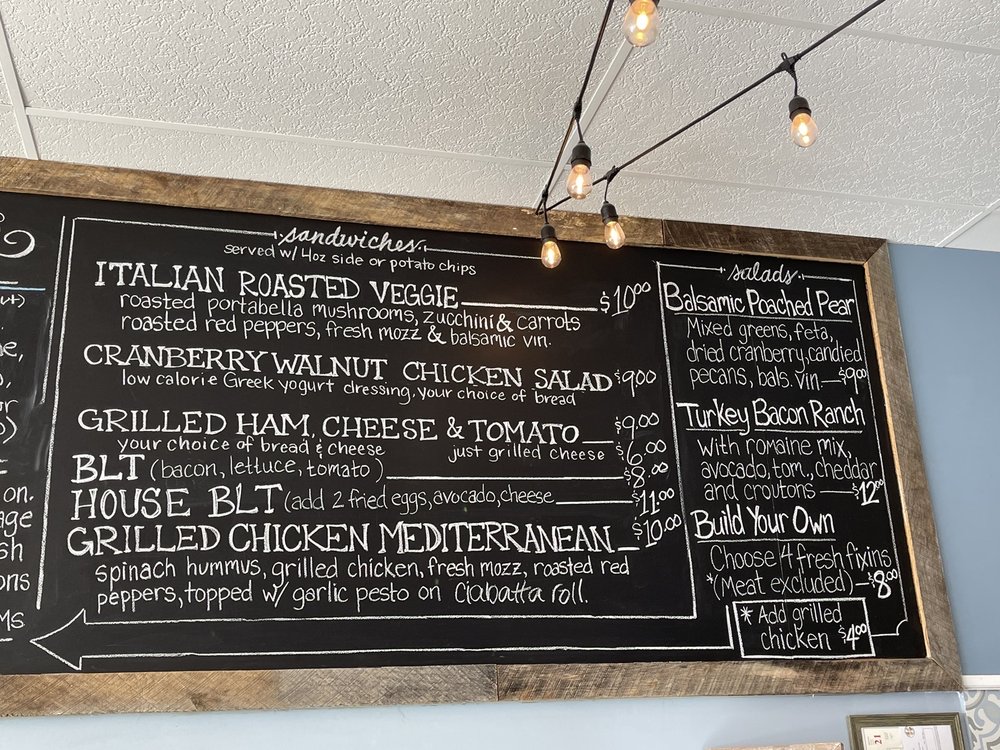 sandwiches
served w/ 4oz side or potato chips
ITALIAN ROASTED VEGGIE $10.00
roasted portabella mushrooms, zucchini & carrots
roasted red peppers, fresh mozz & balsamic vin.
CRANBERRY WALNUT CHICKEN SALAD $9.00
low calorie Greek yogurt dressing, your choice of bread
GRILLED HAM, CHEESE & TOMATO $9.00
your choice of bread & cheese just grilled cheese $6.00
BLT (bacon, lettuce, tomato) $8.00
HOUSE BLT (add 2 fried eggs, avocado, cheese $11.00
GRILLED CHICKEN MEDITERRANEAN $10.00
spinach hummus, grilled chicken, fresh mozz, roasted red
peppers, topped w/ garlic pesto on Ciabatta roll.
salads
Balsamic Poached Pear
Mixed greens, feta,
dried cranberry, candied
pecans, bals. vin $9.00
Turkey Bacon Ranch
with romaine mix,
avocado, tom., cheddar
and croutons $12.00
Build Your Own
Choose 4 fresh fixins
*(Meat excluded) $8.00
* Add grilled
chicken $4.00
on.
21